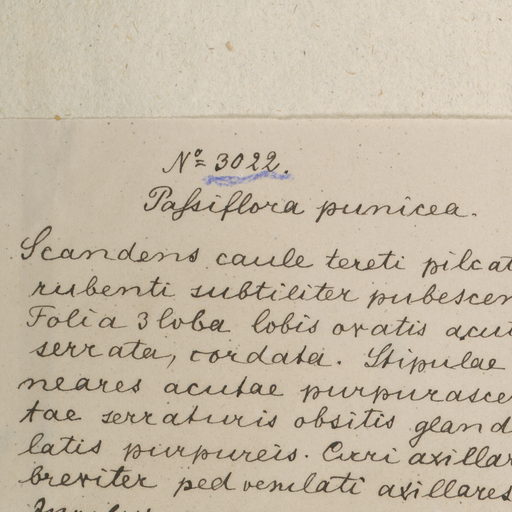 No= 3022.
Passiflora punicea.
Scandens caule tereti pilcat
rubenti subtiliter pubescen
Folia 3loba lobis ovatis acut
serrata, cordata. Stipulae
neares acutae purpurasce
tae serraturis obsitis gland
latis purpureis. Cirri axillar
breviter pedvenlati axillares